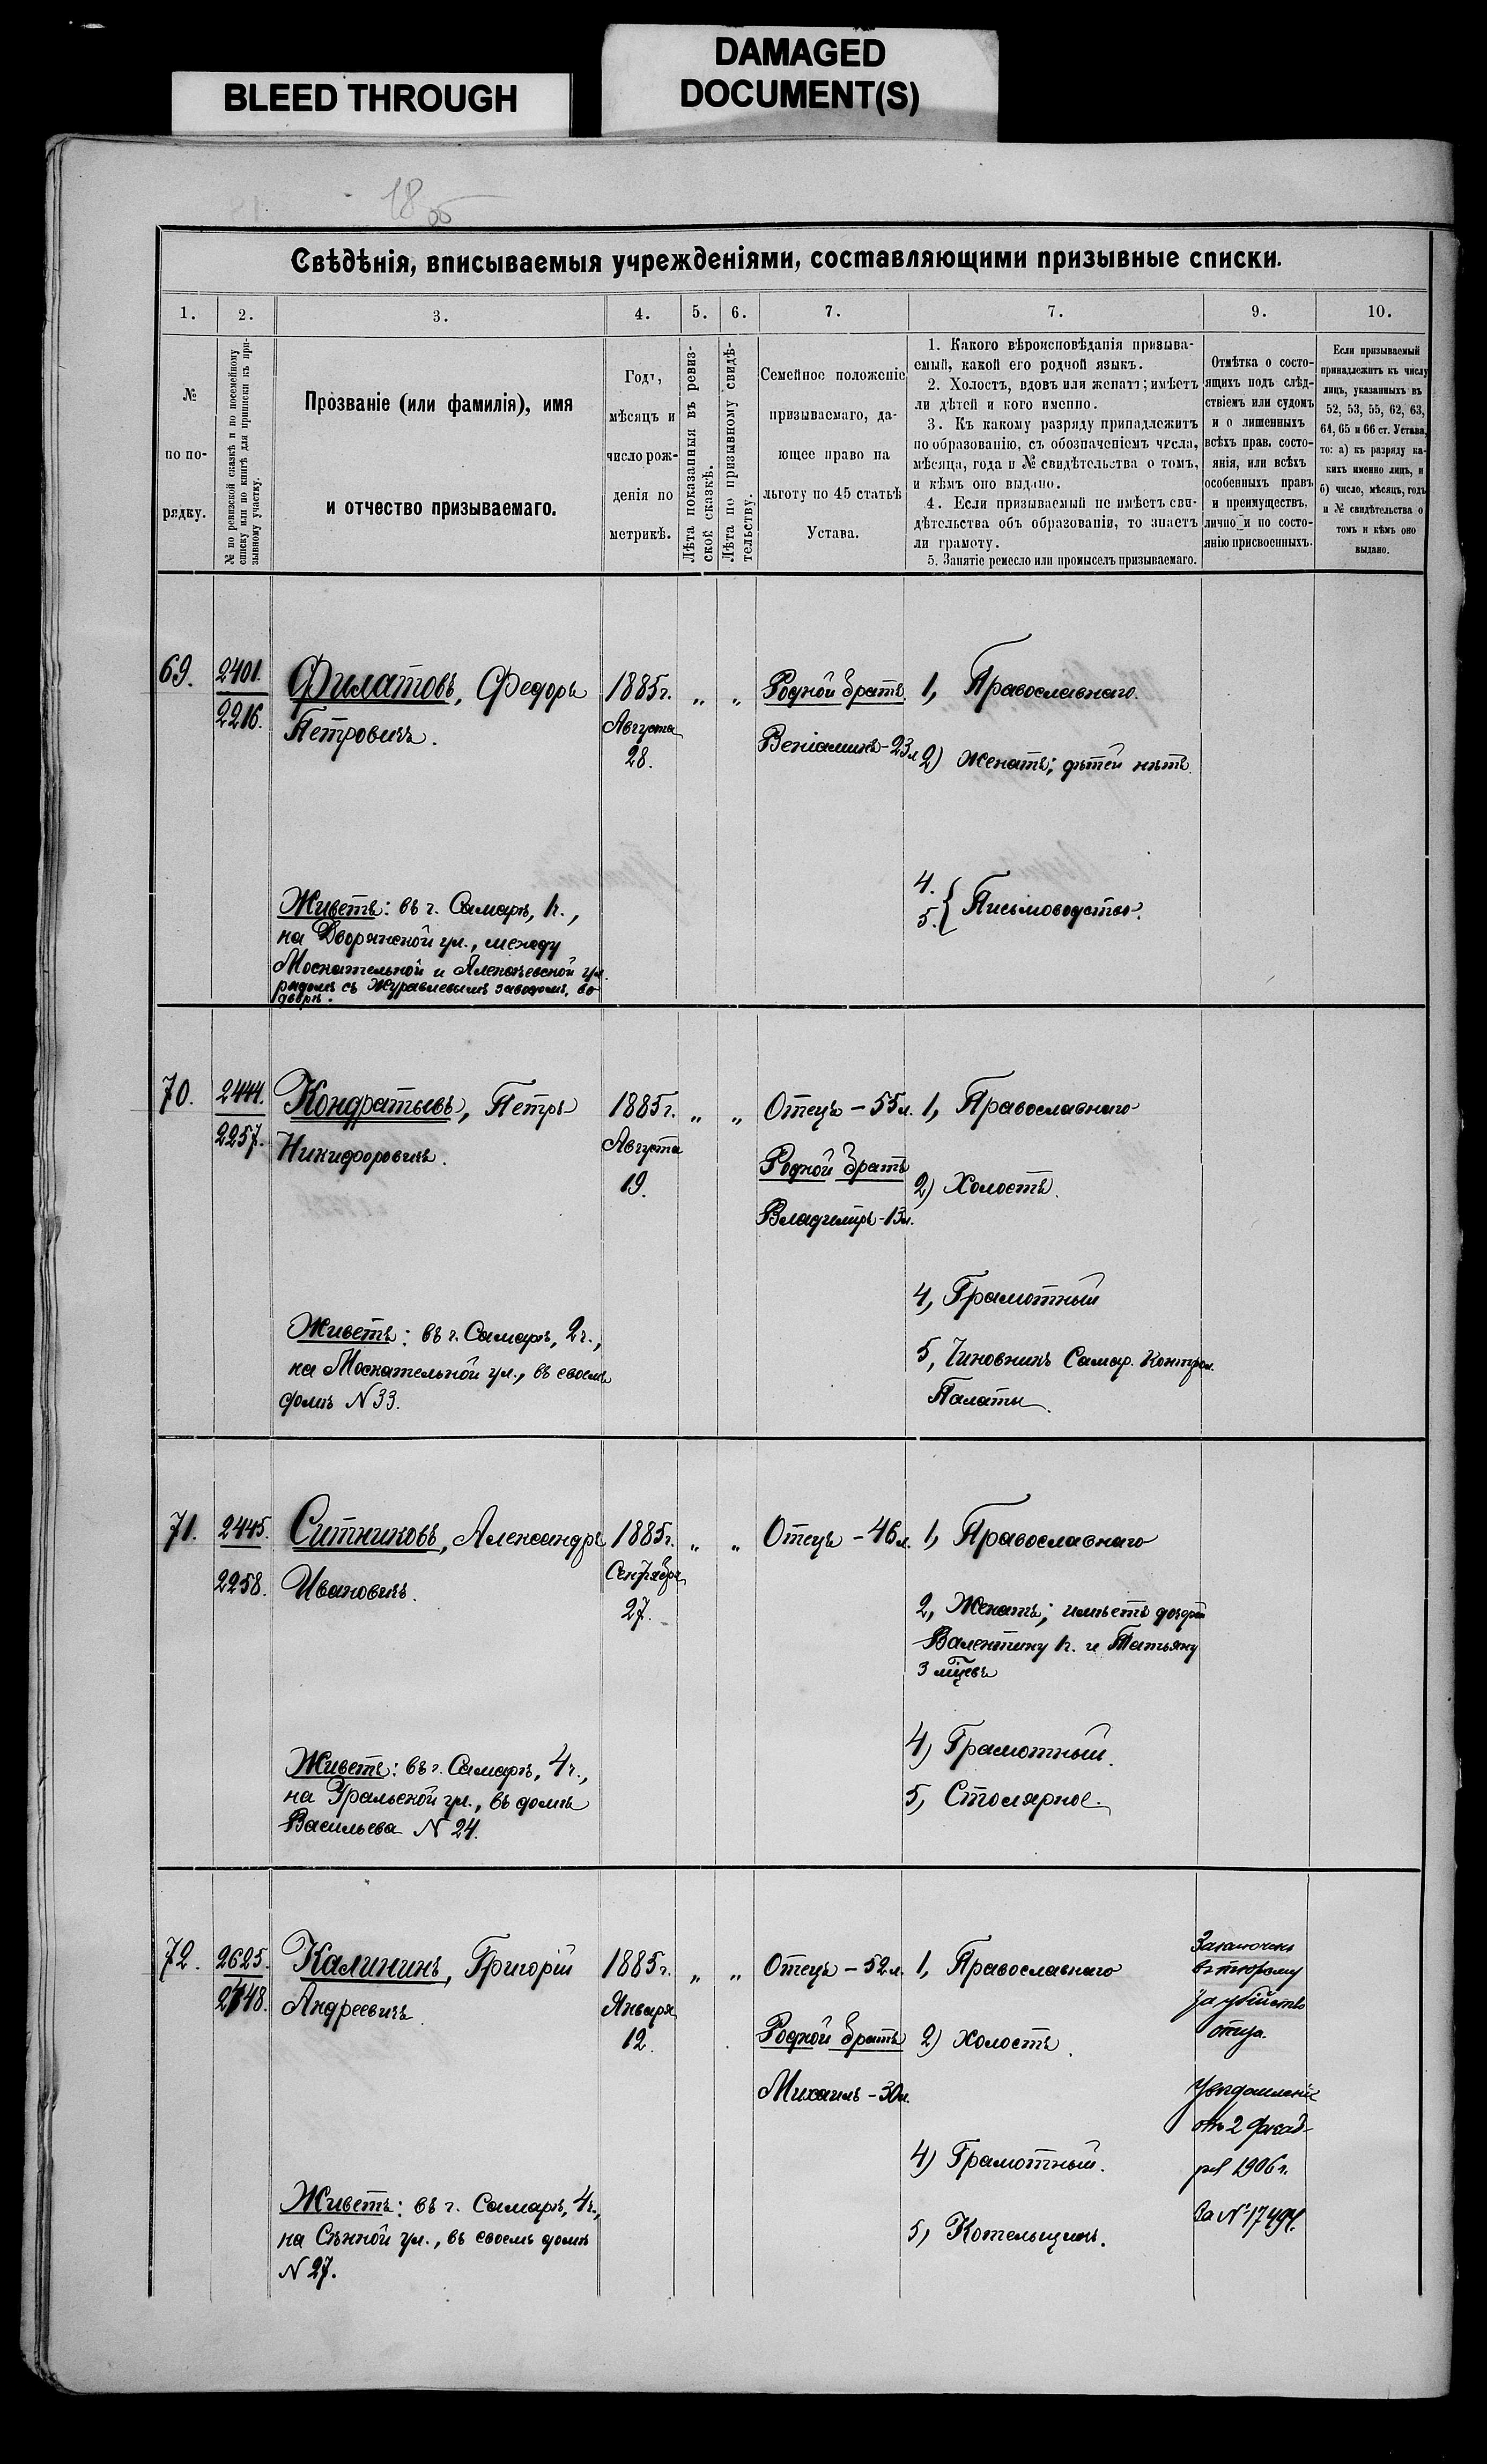 BLEED THROUGH
DAMAGED
DOCUMENT(S)
18
Свѣдѣнія, вписываемыя учрежденіями, составляющими призывные списки.
1.
2.
3.
4.
5.
6.
7.
7.
9.
10.
№
по по-
рядку.
№ по ревизской сказкѣ и по посемейному
списку или по книгѣ для приписки къ при-
зывному участку.
Прозваніе (или фамилія), имя
и отчество призываемаго.
Годъ,
мѣсяцъ и
число рож-
денія по
метрикѣ.
Лѣта показанныя въ ревиз-
ской сказкѣ.
Лѣта по призывному свидѣ-
тельству.
Семейное положеніе
призываемаго, да-
ющее право на
льготу по 45 статьѣ
Устава.
1. Какого вѣроисповѣданія призыва-
емый, какой его родной языкъ.
2. Холостъ, вдовъ или женатъ; имѣетъ
ли дѣтей и кого именно.
3. Къ какому разряду принадлежитъ
по образованію, съ обозначеніемъ числа,
мѣсяца, года и № свидѣтельства о томъ,
и кѣмъ оно выдано.
4. Если призываемый не имѣетъ сви-
дѣтельства объ образованіи, то знаетъ
ли грамоту.
5. Занятіе ремесло или промыселъ призываемаго.
Отмѣтка о состо-
ящихъ подъ слѣд-
ствіемъ или судомъ
и о лишенныхъ
всѣхъ правъ, состо-
янія, или всѣхъ
особенныхъ правъ
и преимуществъ,
лично и по состо-
янію присвоенныхъ.
Если призываемый
принадлежитъ къ числу
лицъ, указанныхъ въ
52, 53, 55, 62, 63,
64, 65 и 66 ст. Устава,
то: а) къ разряду ка-
кихъ именно лицъ, и
б) число, мѣсяцъ, годъ
и № свидѣтельства о
томъ и кѣмъ оно
выдано.
69.
2401.
2216.
Филатовъ, Федоръ
Петровичъ.
1885г.
Августа
28.
„
„
Родной братъ
Веніаминъ - 23л
1, Православнаго.
2) Женатъ; дѣтей нѣтъ.
4.
5. { Письмоводство.
Живетъ: въ г. Самарѣ, 1ч.,
на Дворянской ул., между
Москательной и Алексѣевской ул.
рядомъ съ Журавлевымъ заводомъ, во
дворѣ.
70.
2444.
2257.
Кондратьевъ, Петръ
Никифоровичъ.
1885г.
Августа
19.
„
„
Отецъ - 55л.
Родной братъ
Владиміръ - 13л.
1, Православнаго
2) Холостъ.
4, Грамотный
5, Чиновникъ Самар. Контрол.
Палаты.
Живетъ: въ г. Самарѣ, 2ч.,
на Москательной ул., въ своемъ
домѣ N 33.
71.
2445.
2258.
Ситниковъ, Александръ
Ивановичъ.
1885г.
Сентября
27.
„
„
Отецъ - 46л.
1, Православнаго
2, Женатъ; имѣетъ дочерей
Валентину 1г. и Татьяну
3 мѣсяцевъ
4) Грамотный.
5, Столярное.
Живетъ: въ г. Самарѣ, 4ч.,
на Уральской ул., въ домѣ
Васильева N 24.
72.
2625.
2448.
Калининъ, Григорій
Андреевичъ.
1885г.
Января
12.
„
„
Отецъ - 52л.
Родной братъ
Михаилъ - 30л.
1, Православнаго
2) Холостъ.
4) Грамотный.
5, Котельщикъ.
Заключенъ
въ тюрьму
за убійство
отца.
Увѣдомленіе
отъ 2
1906г.
За №
Живетъ: въ г. Самарѣ, 4ч.,
на Сѣнной ул., въ своемъ домѣ
N 27.